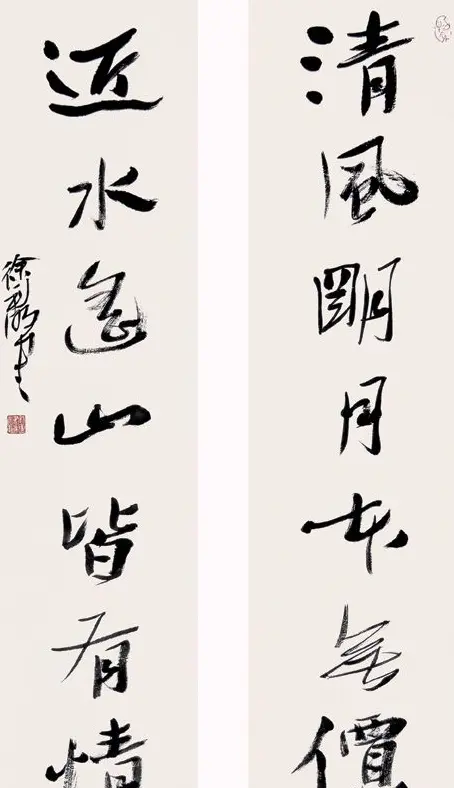 清風朙月本無價
近水遙山皆有情
徐利明書